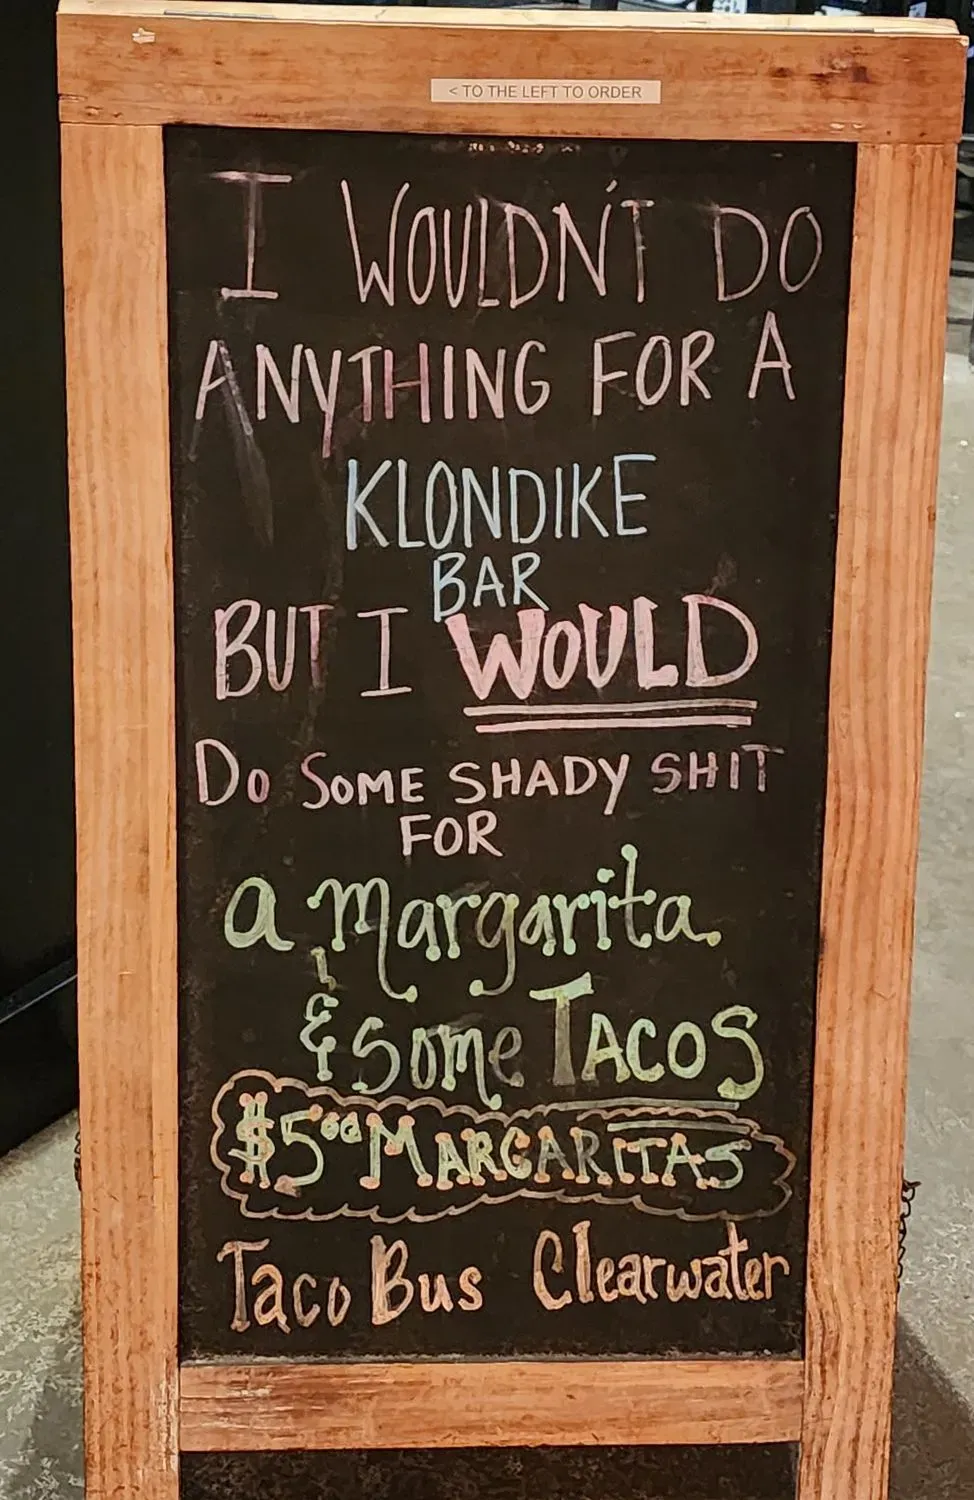 < TO THE LEFT TO ORDER
I WOULDN'T DO
ANYTHING FOR A
KLONDIKE
BAR
BUT I WOULD
DO SOME SHADY SHIT
FOR
a margarita
& some TACOS
$5.00 MARGARITAS
Taco Bus Clearwater